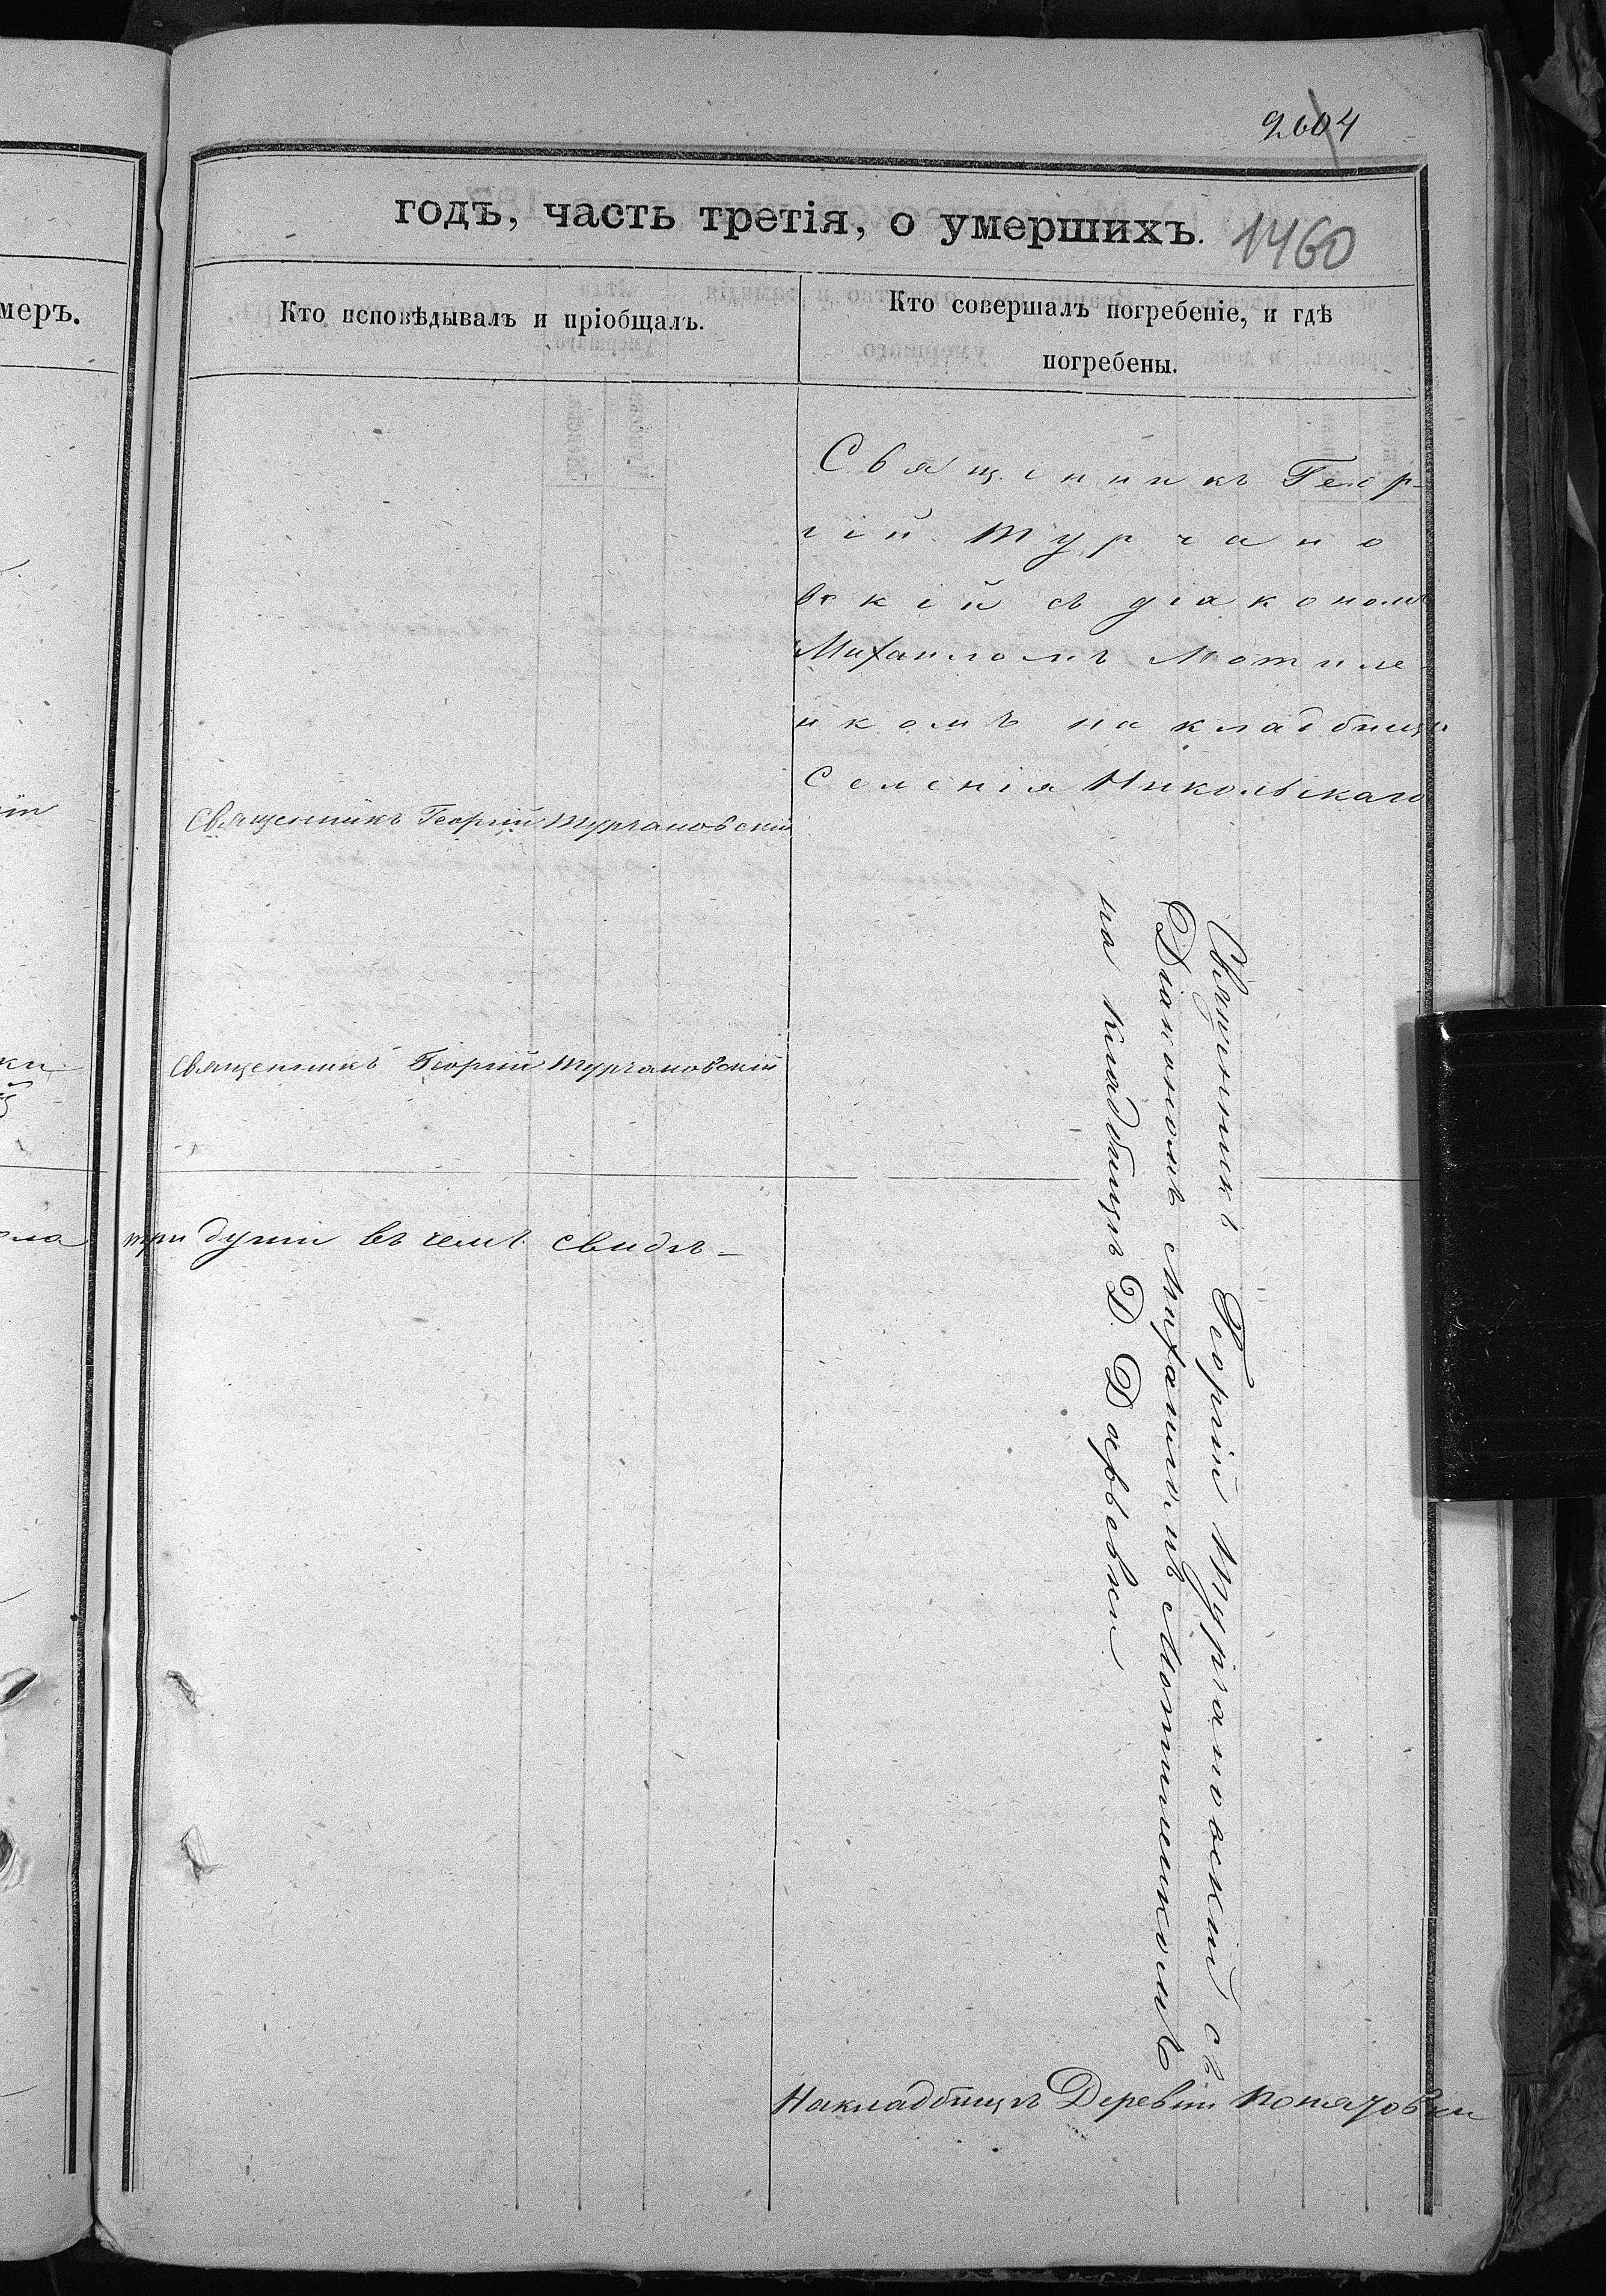 2604
годъ, часть третія, о умершихъ.
1460
меръ.
Кто исповѣдывалъ и пріобщалъ.
Кто совершалъ погребеніе, и гдѣ
погребены.
Священникъ Геор-
гій Турчано
вскій съ діакономъ
Михаиломъ Мотиле
нкомъ на кладбищѣ
Селенія Никольскаго
Священникъ Георгій Турчановскій
Священникъ Георгій Турчановскій
три души въ чемъ свидѣ-
Священникъ Георгій Турчановскій съ
Діакономъ Михаиломъ Мотиленкомъ
на кладбищѣ Д.
На кладбищѣ Деревни